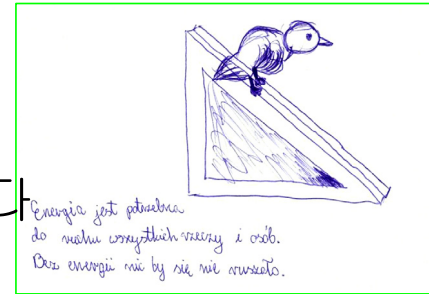 Energia jest potrzebna
do ruchu wszystkich rzeczy i osób.
Bez energii nic by się nie ruszało.